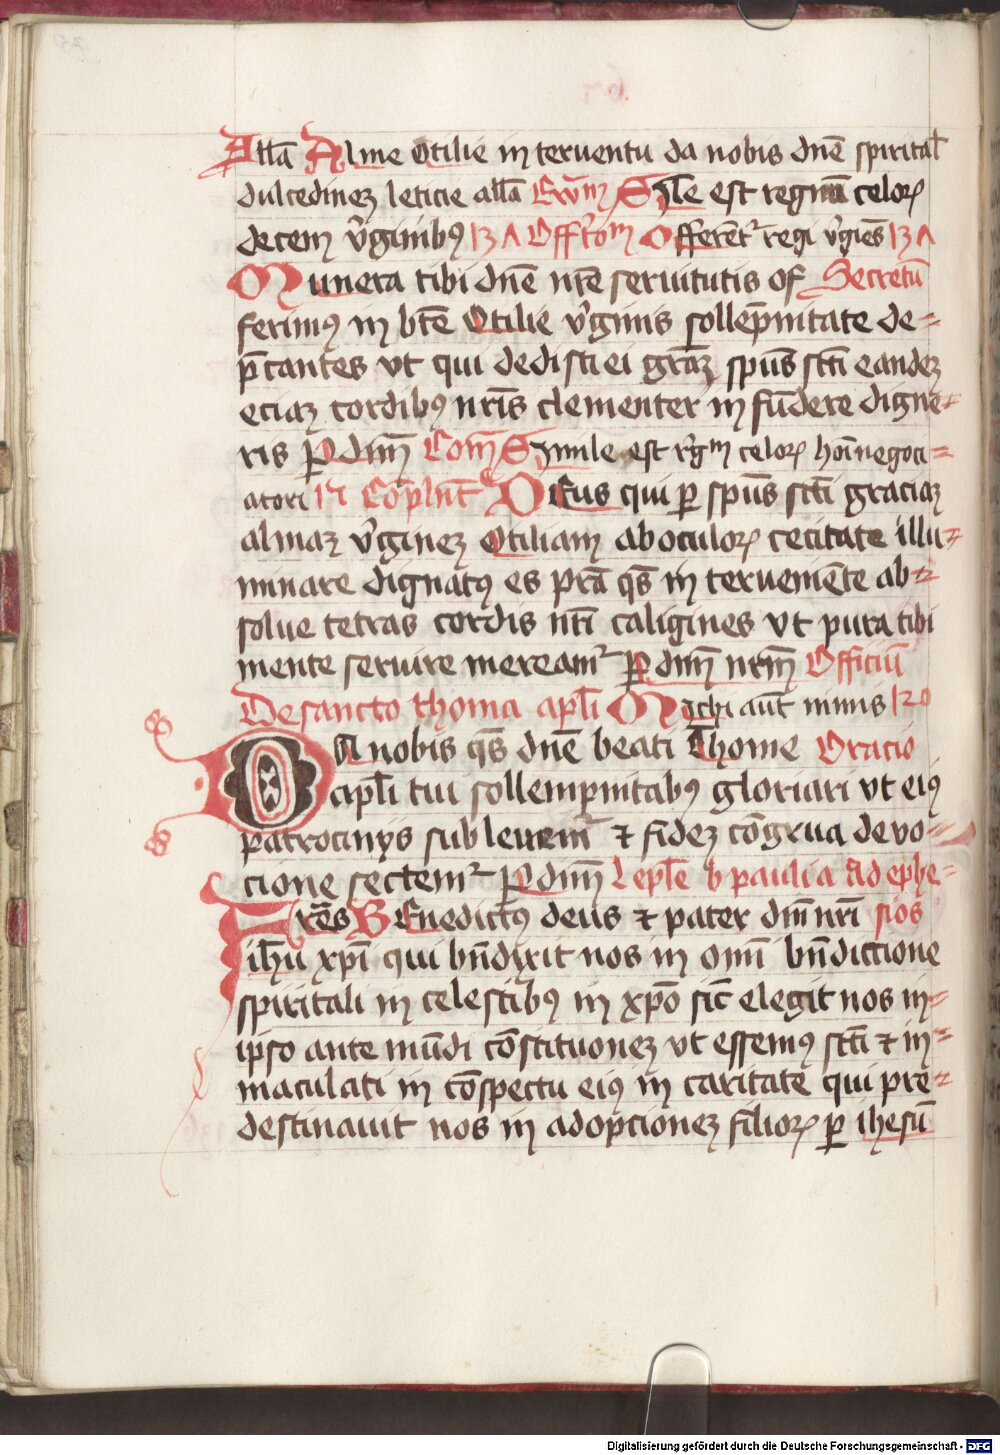 Alla Alme Otilie in teruentu da nobis dnē spiritał
dulcedinez leticie alla Ewm Sile est regnū celoꝝ
decem v̓ginibꝰ 13 A Offrom Offerēt᷑ regi v̓gies 13 A
Munera tibi dnē nrē seruitutis of Secretū
ferimꝰ in btē Otilie v̓ginis sollēpnitate de=
p̄cantes vt qui dedisti ei grāz spūs scti eandez
eciaz cordibꝰ nrīs clementer in fūdere digne=
ris ꝑ dnm̄ Com̄ Simile est rgm celoꝝ hoī negoci=
atori Complnt Deus qui ꝑ spūs scti graciaz
almaz v̓ginez Otiliam ab oculoꝝ cecitate illu=
minare dignatꝰ es prā qs̄ in terueniēte ab=
solue tetras cordis nrī caligines vt pura tibi
mente seruire meream᷑ ꝑ dnm̄ nrm̄ Officiū
De sancto thoma apłi Michi aūt nimis 120
DA nobis qs̄ dnē beati Thome Oracio
apłi tui sollempnitabꝰ gloriari vt eiꝰ
patrocinÿs subleuem᷑ ⁊ fidez cōgrua deuo=
cione sectem᷑ ꝑ dnm̄ Lepłe b pauli a Ad ephe=
Frēs BEnedictꝰ deus ⁊ pater dnī nrī sios
ihū xpī qui bn̄dixit nos in omī bn̄diccione
spiritali in celestibꝰ in xp̄o sic̄ elegit nos in=
ipso ante mūdi cōstitucionez vt essemꝰ scti ⁊ in=
maculati in cōspectu eiꝰ in caritate qui pre=
destinauit nos in adopcionez filioꝝ ꝑ ihesū
Digitalisierung gefördert durch die Deutsche Forschungsgemeinschaft - DFG